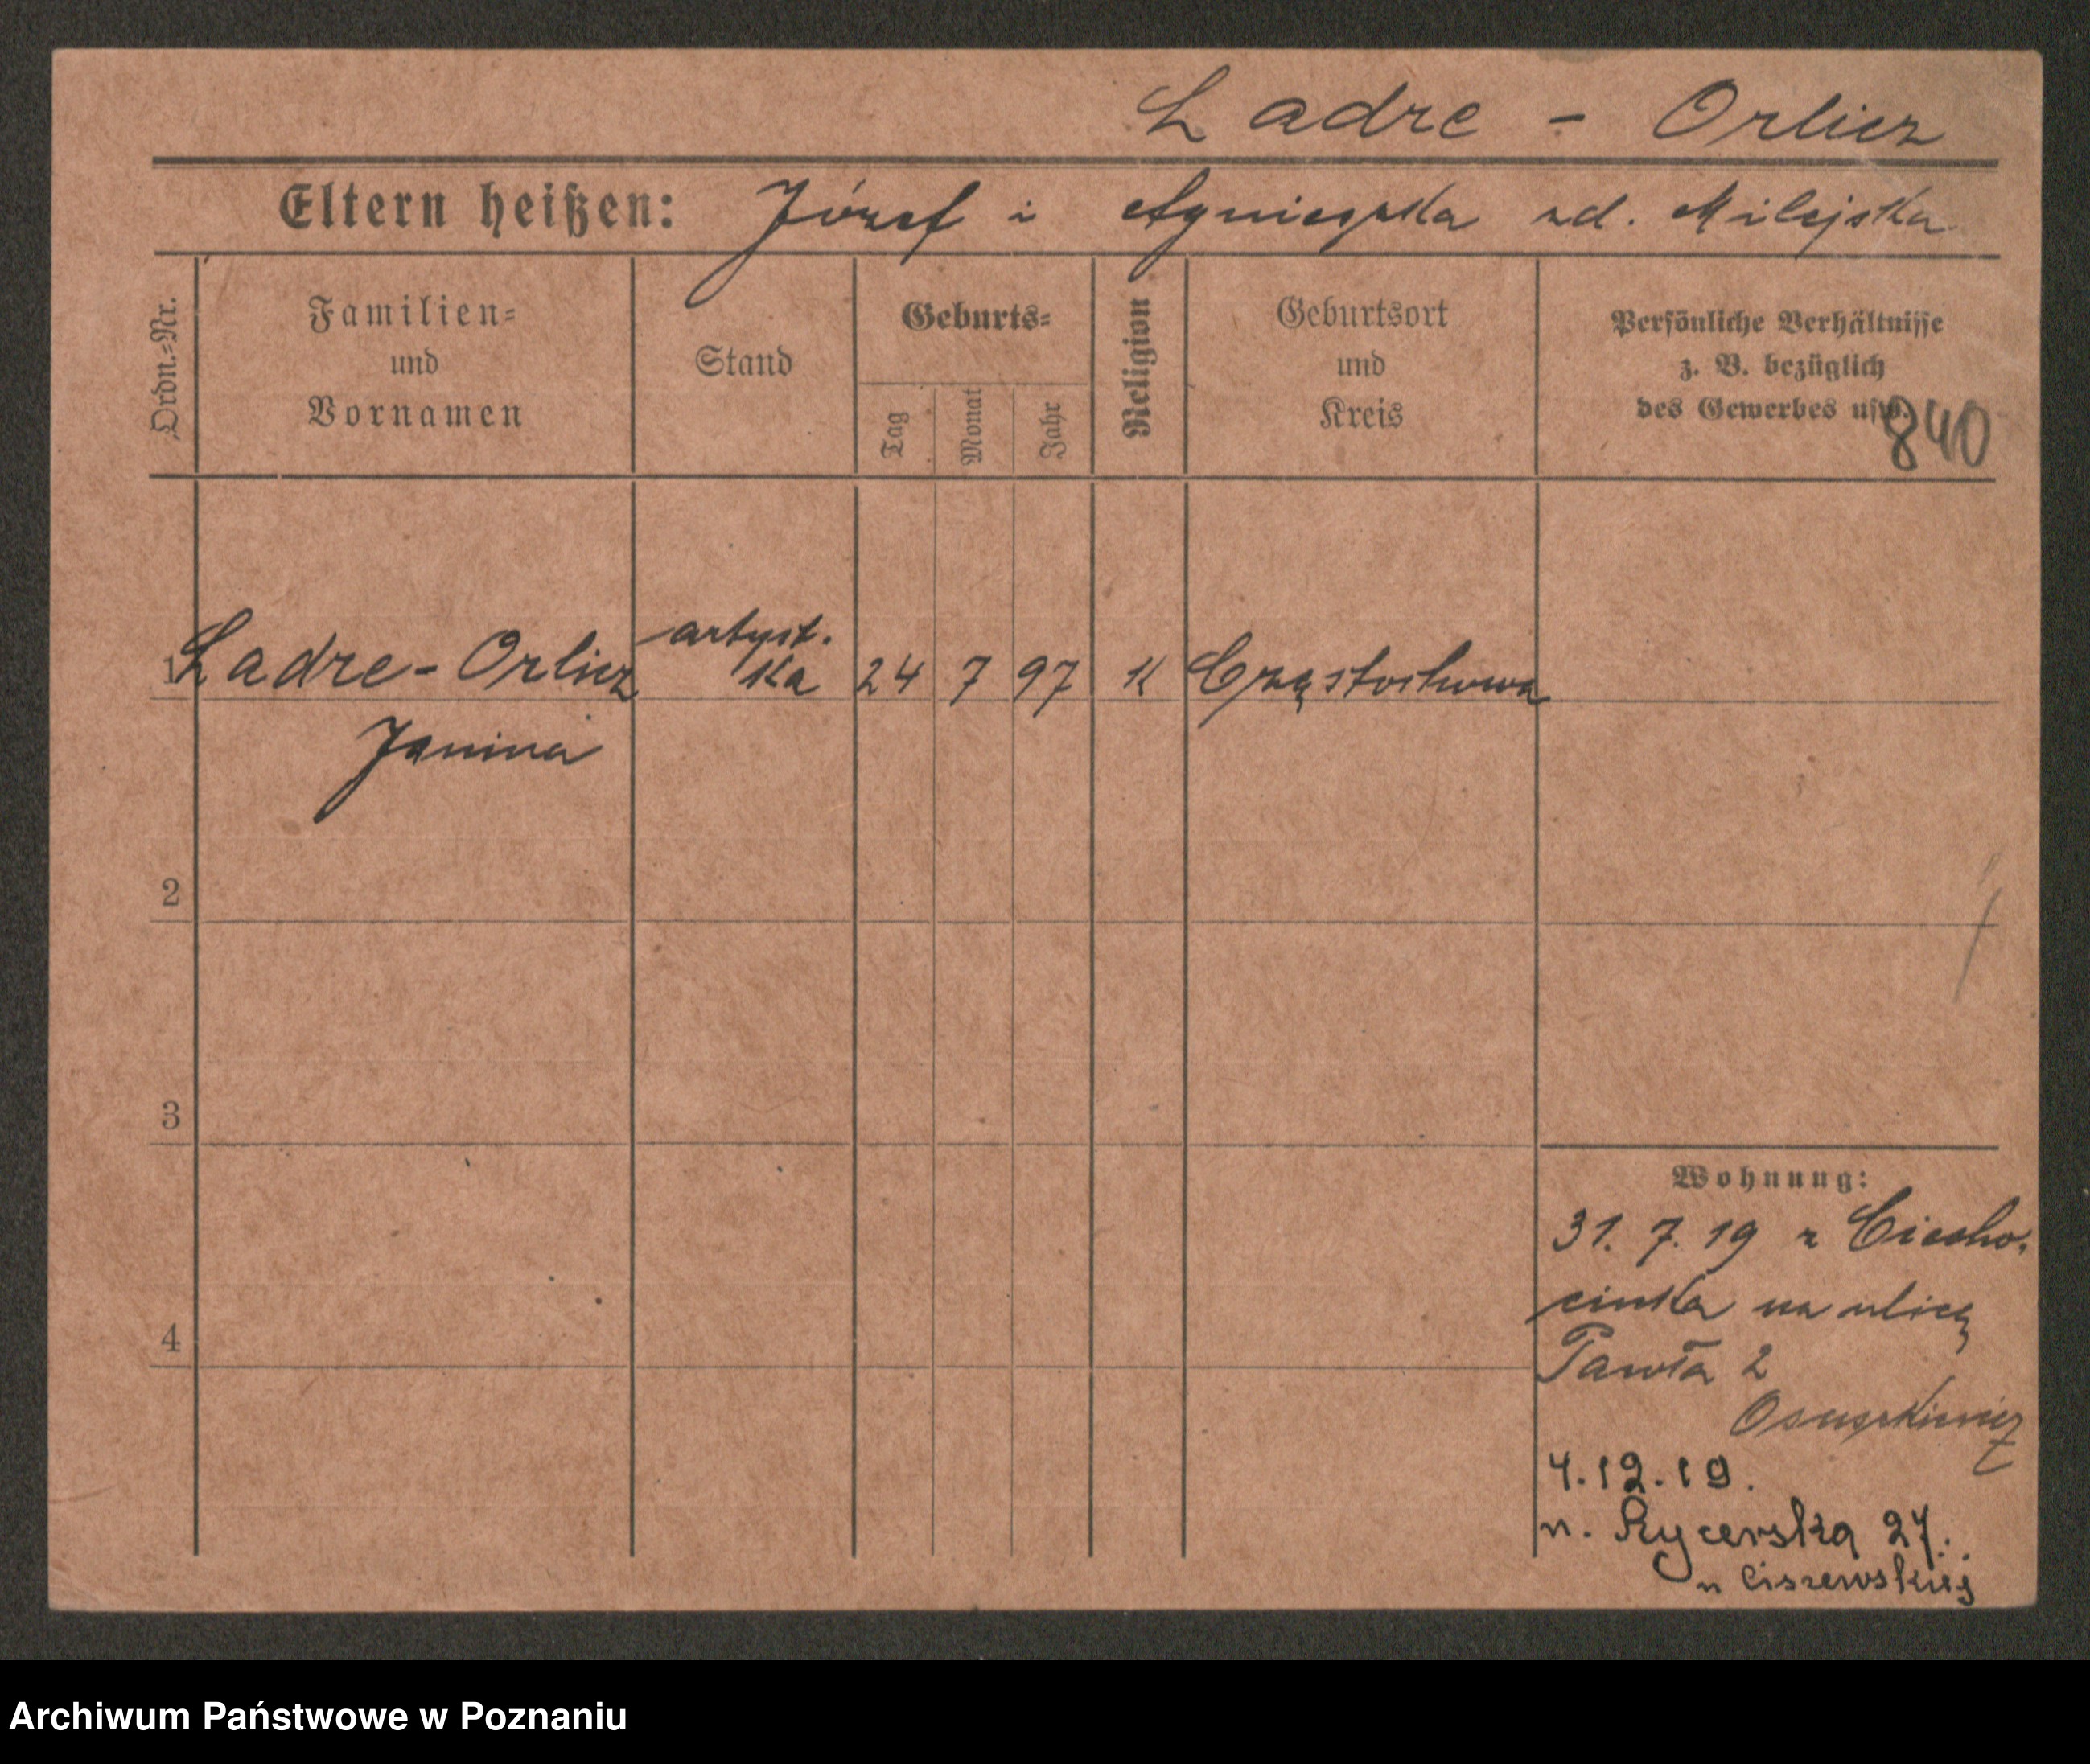 Ladre - Orlicz
Eltern heißen: Józef i Agnieszka zd. Milejska
Ordn.=Nr.
Familien=
und
Vornamen
Stand
Geburts=
Tag
Monat
Jahr
Religion
Geburtsort
und
Kreis
Persönliche Verhältnisse
z. B. bezüglich
des Gewerbes usw.
840
artyst.
1 Ladre-Orlicz ka 24 7 97 K Częstochowa
Janina
2
3
Wohnung:
31. 7. 19 z Ciecho-
cinka na ulicę
4
Pawła 2
4.12.19.
n. Rycerska 27.
u Ciszewskiej
Archiwum Państwowe w Poznaniu